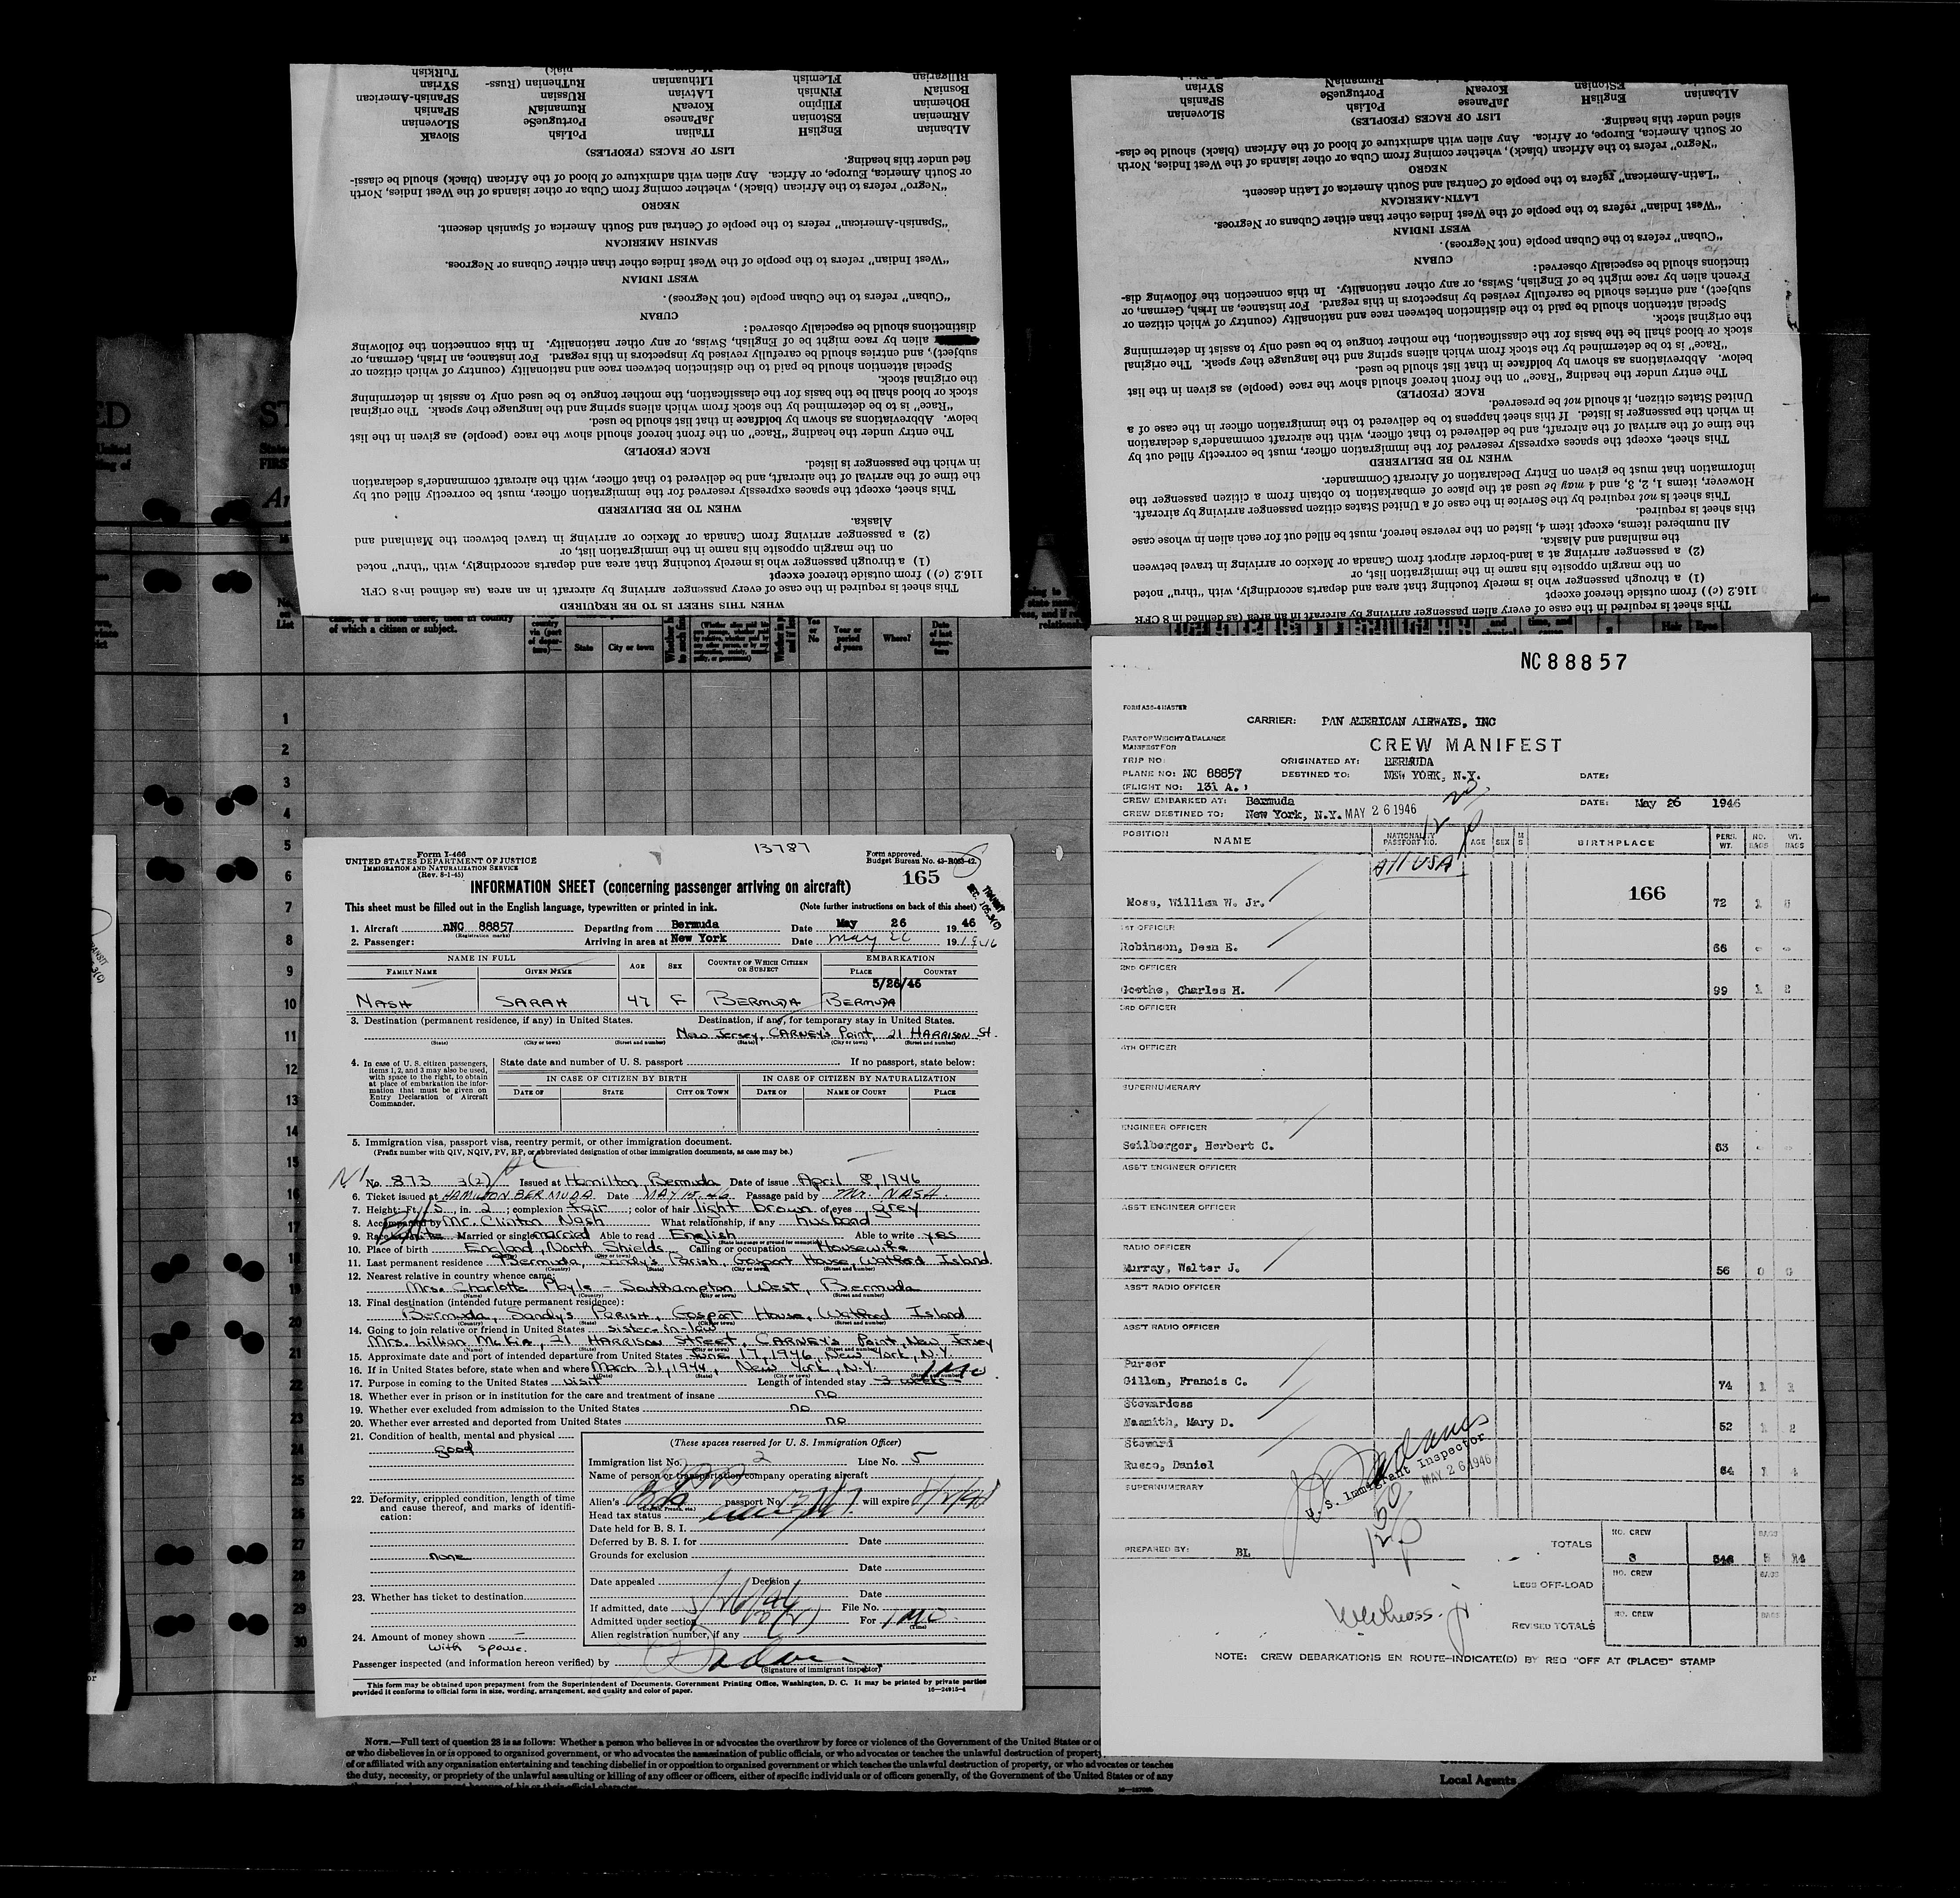 WHEN THIS SHEET IS TO BE REQUIRED
This sheet is required in the case of every passenger arriving by aircraft in an area (as defined in 8 CFR
116.2 (c)) from outside thereof except
(1) a through passenger who is merely touching that area and departs accordingly, with "thru" noted
on the margin opposite his name in the immigration list, or
(2) a passenger arriving from Canada or Mexico or arriving in travel between the Mainland and
Alaska.
WHEN TO BE DELIVERED
This sheet, except the spaces expressly reserved for the immigration officer, must be correctly filled out by
the time of the arrival of the aircraft, and be delivered to that officer, with the aircraft commander's declaration
in which the passenger is listed.
RACE (PEOPLE)
The entry under the heading "Race" on the front hereof should show the race (people) as given in the list
below. Abbreviations as shown by boldface in that list should be used.
"Race" is to be determined by the stock from which aliens spring and the language they speak. The original
stock or blood shall be the basis for the classification, the mother tongue to be used only to assist in determining
the original stock.
Special attention should be paid to the distinction between race and nationality (country of which citizen or
subject), and entries should be carefully revised by inspectors in this regard. For instance, an Irish, German, or
alien by race might be of English, Swiss, or any other nationality. In this connection the following
distinctions should be especially observed:
CUBAN
"Cuban" refers to the Cuban people (not Negroes).
WEST INDIAN
"West Indian" refers to the people of the West Indies other than either Cubans or Negroes.
SPANISH AMERICAN
"Spanish-American" refers to the people of Central and South America of Spanish descent.
NEGRO
"Negro" refers to the African (black), whether coming from Cuba or other islands of the West Indies, North
or South America, Europe, or Africa. Any alien with admixture of blood of the African (black) should be classi-
fied under this heading.
LIST OF RACES (PEOPLES)
ALbanian ENglisH ITalian POLish SlovaK
ARMenian EStonian JaPanese PortugueSe SLOVenian
BOHemian FIlipino KoreaN RumaniaN SPanish
BosniaN FINNish LAtvian RUSsian SPanish-American
BULgarian FLEMish LIthuanian RuThenian (Russ- SYRian
niak) TuRkish
This sheet is required in the case of every alien passenger arriving by aircraft in an area (as defined in 8 CFR
116.2 (c)) from outside thereof except
(1) a through passenger who is merely touching that area and departs accordingly, with "thru" noted
on the margin opposite his name in the immigration list, or
(2) a passenger arriving at a land-border airport from Canada or Mexico or arriving in travel between
the mainland and Alaska.
All numbered items, except item 4, listed on the reverse hereof, must be filled out for each alien in whose case
this sheet is required.
This sheet is not required by the Service in the case of a United States citizen passenger arriving by aircraft.
However, items 1, 2, 3, and 4 may be used at the place of embarkation to obtain from a citizen passenger the
information that must be given on Entry Declaration of Aircraft Commander.
WHEN TO BE DELIVERED
This sheet, except the spaces expressly reserved for the immigration officer, must be correctly filled out by
the time of the arrival of the aircraft, and be delivered to that officer, with the aircraft commander's declaration
in which the passenger is listed. If this sheet happens to be delivered to the immigration officer in the case of a
United States citizen, it should not be preserved.
RACE (PEOPLE)
The entry under the heading "Race" on the front hereof should show the race (people) as given in the list
below. Abbreviations as shown by boldface in that list should be used.
"Race" is to be determined by the stock from which aliens spring and the language they speak. The original
stock or blood shall be the basis for the classification, the mother tongue to be used only to assist in determining
the original stock.
Special attention should be paid to the distinction between race and nationality (country of which citizen or
subject), and entries should be carefully revised by inspectors in this regard. For instance, an Irish, German, or
French alien by race might be of English, Swiss, or any other nationality. In this connection the following dis-
tinctions should be especially observed:
CUBAN
"Cuban" refers to the Cuban people (not Negroes).
WEST INDIAN
"West Indian" refers to the people of the West Indies other than either Cubans or Negroes.
LATIN-AMERICAN
"Latin-American" refers to the people of Central and South America of Latin descent.
NEGRO
"Negro" refers to the African (black), whether coming from Cuba or other islands of the West Indies, North
or South America, Europe, or Africa. Any alien with admixture of blood of the African (black) should be clas-
sified under this heading.
LIST OF RACES (PEOPLES)
ALbanian ENglisH JaPanese POLish SLOVenian
EStonian KoreaN PortugueSe SPanish
RumaniaN SYRian
of which a citizen or subject.
State City or town
Yes or No
Year or period of years
Where?
Date of last departure
1
2
3
4
5
6
7
8
9
10
11
12
13
14
15
16
17
18
19
20
21
22
23
24
25
26
27
28
29
30
13787
Form I-466
UNITED STATES DEPARTMENT OF JUSTICE
IMMIGRATION AND NATURALIZATION SERVICE
(Rev. 8-1-45)
Form approved.
Budget Bureau No. 43-R083-42.
165
INFORMATION SHEET (concerning passenger arriving on aircraft)
This sheet must be filled out in the English language, typewritten or printed in ink. (Note further instructions on back of this sheet)
TRANSIT
1. Aircraft nNC 88857 Departing from Bermuda Date May 26 1946
(Registration marks)
2. Passenger: Arriving in area at New York Date May 26 19 1946
NAME IN FULL AGE SEX COUNTRY OF WHICH CITIZEN OR SUBJECT EMBARKATION
FAMILY NAME GIVEN NAME PLACE COUNTRY
5/26/46
NASH SARAH 47 F BERMUDA BERMUDA
3. Destination (permanent residence, if any) in United States. Destination, if any, for temporary stay in United States.
New Jersey, CARNEY'S Point, 21 HARRISON St.
(State) (City or town) (Street and number) (State) (City or town) (Street and number)
4. In case of U. S. citizen passengers, items 1, 2, and 3 may also be used, with space to the right, to obtain at place of embarkation the information that must be given on Entry Declaration of Aircraft Commander.
State date and number of U. S. passport If no passport, state below:
IN CASE OF CITIZEN BY BIRTH IN CASE OF CITIZEN BY NATURALIZATION
DATE OF STATE CITY OR TOWN DATE OF NAME OF COURT PLACE
5. Immigration visa, passport visa, reentry permit, or other immigration document.
(Prefix number with QIV, NQIV, PV, RP, or abbreviated designation of other immigration documents, as case may be.)
No. 873 3(2) Issued at Hamilton, Bermuda Date of issue April 8, 1946
6. Ticket issued at HAMILTON BERMUDA Date MAY 15-46 Passage paid by Mr. NASH.
7. Height: Ft. 5, in. 2; complexion fair; color of hair light brown of eyes grey
8. Accompanied by Mr. Clinton Nash What relationship, if any husband
9. Race white Married or single married Able to read English Able to write yes
(State language or ground for exemption)
10. Place of birth England, North Shields Calling or occupation Housewife
11. Last permanent residence Bermuda, Sandy's Parish, Gosport House, Watford Island
(Country) (State) (City or town) (Street and number)
12. Nearest relative in country whence came:
Mrs. Charlotte Phyle - Southampton West, Bermuda
(Name) (Country) (City or town) (Street and number)
13. Final destination (intended future permanent residence):
Bermuda, Sandy's PARISH, Gosport House, Watford Island
(Country) (State) (City or town) (Street and number)
14. Going to join relative or friend in United States sister-in-law
Mrs. Lillian McKia, 21 HARRISON Street, CARNEY'S Point, New Jersey
15. Approximate date and port of intended departure from United States June 17, 1946, New York, N.Y.
16. If in United States before, state when and where March 31, 1944, New York, N.Y.
17. Purpose in coming to the United States visit Length of intended stay 3 weeks 1 Mo
18. Whether ever in prison or in institution for the care and treatment of insane no
19. Whether ever excluded from admission to the United States no
20. Whether ever arrested and deported from United States no
21. Condition of health, mental and physical
good
22. Deformity, crippled condition, length of time and cause thereof, and marks of identification:
none
23. Whether has ticket to destination
24. Amount of money shown —
with spouse.
(These spaces reserved for U. S. Immigration Officer)
Immigration list No. 2 Line No. 5
Name of person or transportation company operating aircraft
Alien's passport No. will expire
Head tax status
Date held for B. S. I.
Deferred by B. S. I. for Date
Grounds for exclusion
Date
Date appealed Decision
Date
If admitted, date 5/26/46 File No.
Admitted under section For 1 Mo
(Time)
Alien registration number, if any
Passenger inspected (and information hereon verified) by
(Signature of immigrant inspector)
This form may be obtained upon prepayment from the Superintendent of Documents, Government Printing Office, Washington, D. C. It may be printed by private parties
provided it conforms to official form in size, wording, arrangement, and quality and color of paper. 16—24915-4
NOTE.—Full text of question 28 is as follows: Whether a person who believes in or advocates the overthrow by force or violence of the Government of the United States or of
or who disbelieves in or is opposed to organized government, or who advocates the assassination of public officials, or who advocates or teaches the unlawful destruction of property,
of or affiliated with any organization entertaining and teaching disbelief in or opposition to organized government or which teaches the unlawful destruction of property, or who advocates or teaches
the duty, necessity, or propriety of the unlawful assaulting or killing of any officer or officers, either of specific individuals or of officers generally, of the Government of the United States or of any
Local Agents
NC88857
FORM A20-4 MASTER
CARRIER: PAN AMERICAN AIRWAYS, INC
PART OF WEIGHT & BALANCE
MANIFEST FOR
CREW MANIFEST
TRIP NO: ORIGINATED AT: BERMUDA
PLANE NO: NC 88857 DESTINED TO: NEW YORK, N.Y. DATE:
(FLIGHT NO: 131 A.)
CREW EMBARKED AT: Bermuda DATE: May 26 1946
CREW DESTINED TO: New York, N.Y. MAY 26 1946
POSITION NAME NATIONALITY PASSPORT NO. AGE SEX M S BIRTHPLACE PERS. WT. NO. BAGS WT. BAGS
All USA
166
Moss, William W. Jr. 72 1 5
1ST OFFICER
Robinson, Dean E. 66 - -
2ND OFFICER
Goethe, Charles H. 99 1 2
3RD OFFICER
4TH OFFICER
SUPERNUMERARY
ENGINEER OFFICER
Seilberger, Herbert C. 63 - -
ASS'T ENGINEER OFFICER
ASS'T ENGINEER OFFICER
RADIO OFFICER
Murray, Walter J. 56 0 0
ASS'T RADIO OFFICER
ASS'T RADIO OFFICER
Purser
Gillen, Francis C. 74 1
Stewardess
Nasmith, Mary D. 52 1 2
Steward
Russo, Daniel 64 1 4
SUPERNUMERARY
U. S. Immigrant Inspector
MAY 26 1946
PREPARED BY: BL
TOTALS NO. CREW 8 546 5 14 BAGS
LESS OFF-LOAD NO. CREW BAGS
REVISED TOTALS NO. CREW BAGS
WWMoss. jr
NOTE: CREW DEBARKATIONS EN ROUTE-INDICATE(D) BY RED "OFF AT (PLACE)" STAMP